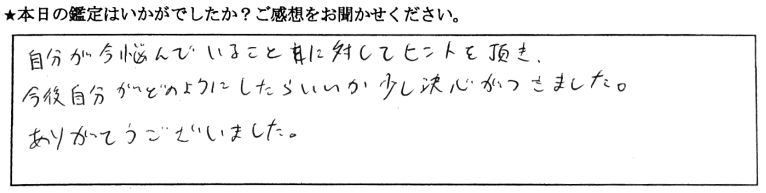 ★本日の鑑定はいかがでしたか？ご感想をお聞かせください。
自分が今悩んでいること に対してヒントを頂き、
今後自分がどのようにしたらいいか少し決心がつきました。
ありがとうございました。